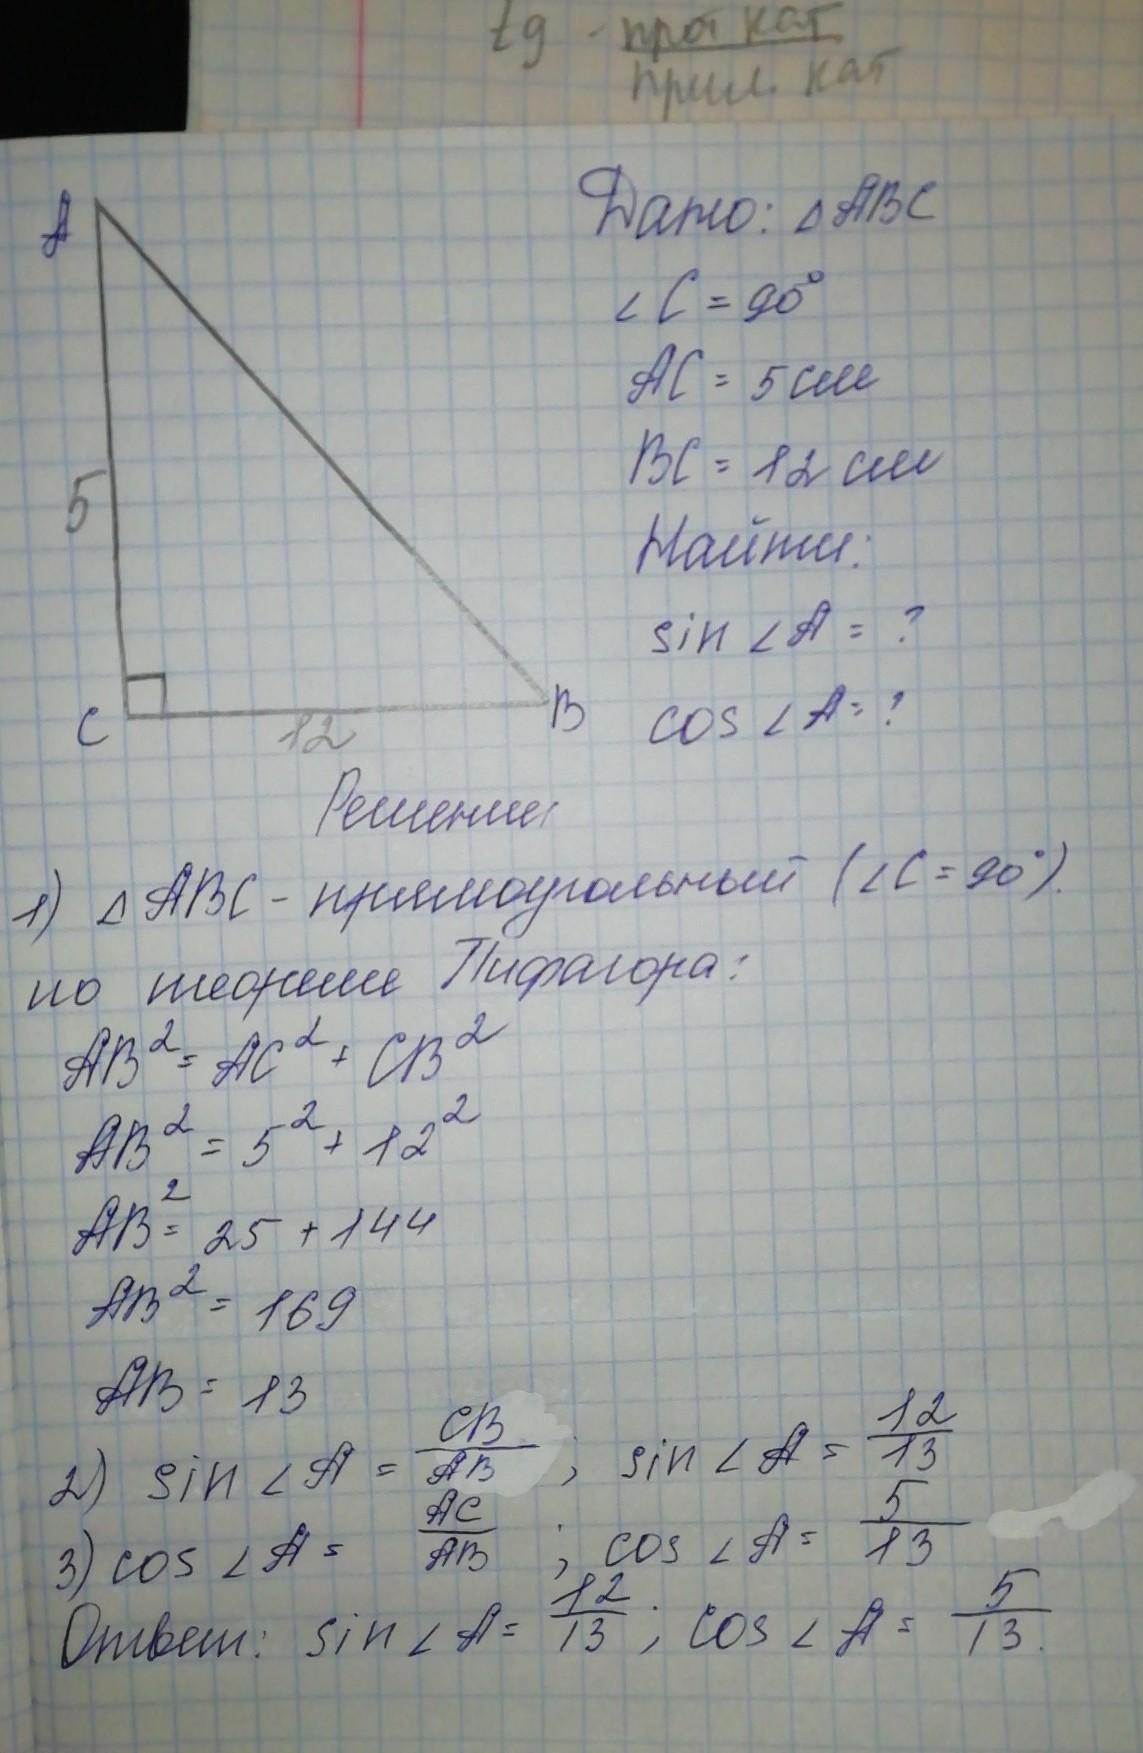 tg - прот кат
прил. кат
A
Дано: △ABC
∠C = 90°
AC = 5 см
BC = 12 см
5
Найти:
sin ∠A = ?
cos ∠A = ?
C
12
B
Решение:
1) △ABC - прямоугольный (∠C = 90°).
по теореме Пифагора:
AB² = AC² + CB²
AB² = 5² + 12²
AB² = 25 + 144
AB² = 169
AB = 13
2) sin ∠A = CB/AB ; sin ∠A = 12/13
3) cos ∠A = AC/AB ; cos ∠A = 5/13
Ответ: sin ∠A = 12/13 ; cos ∠A = 5/13.